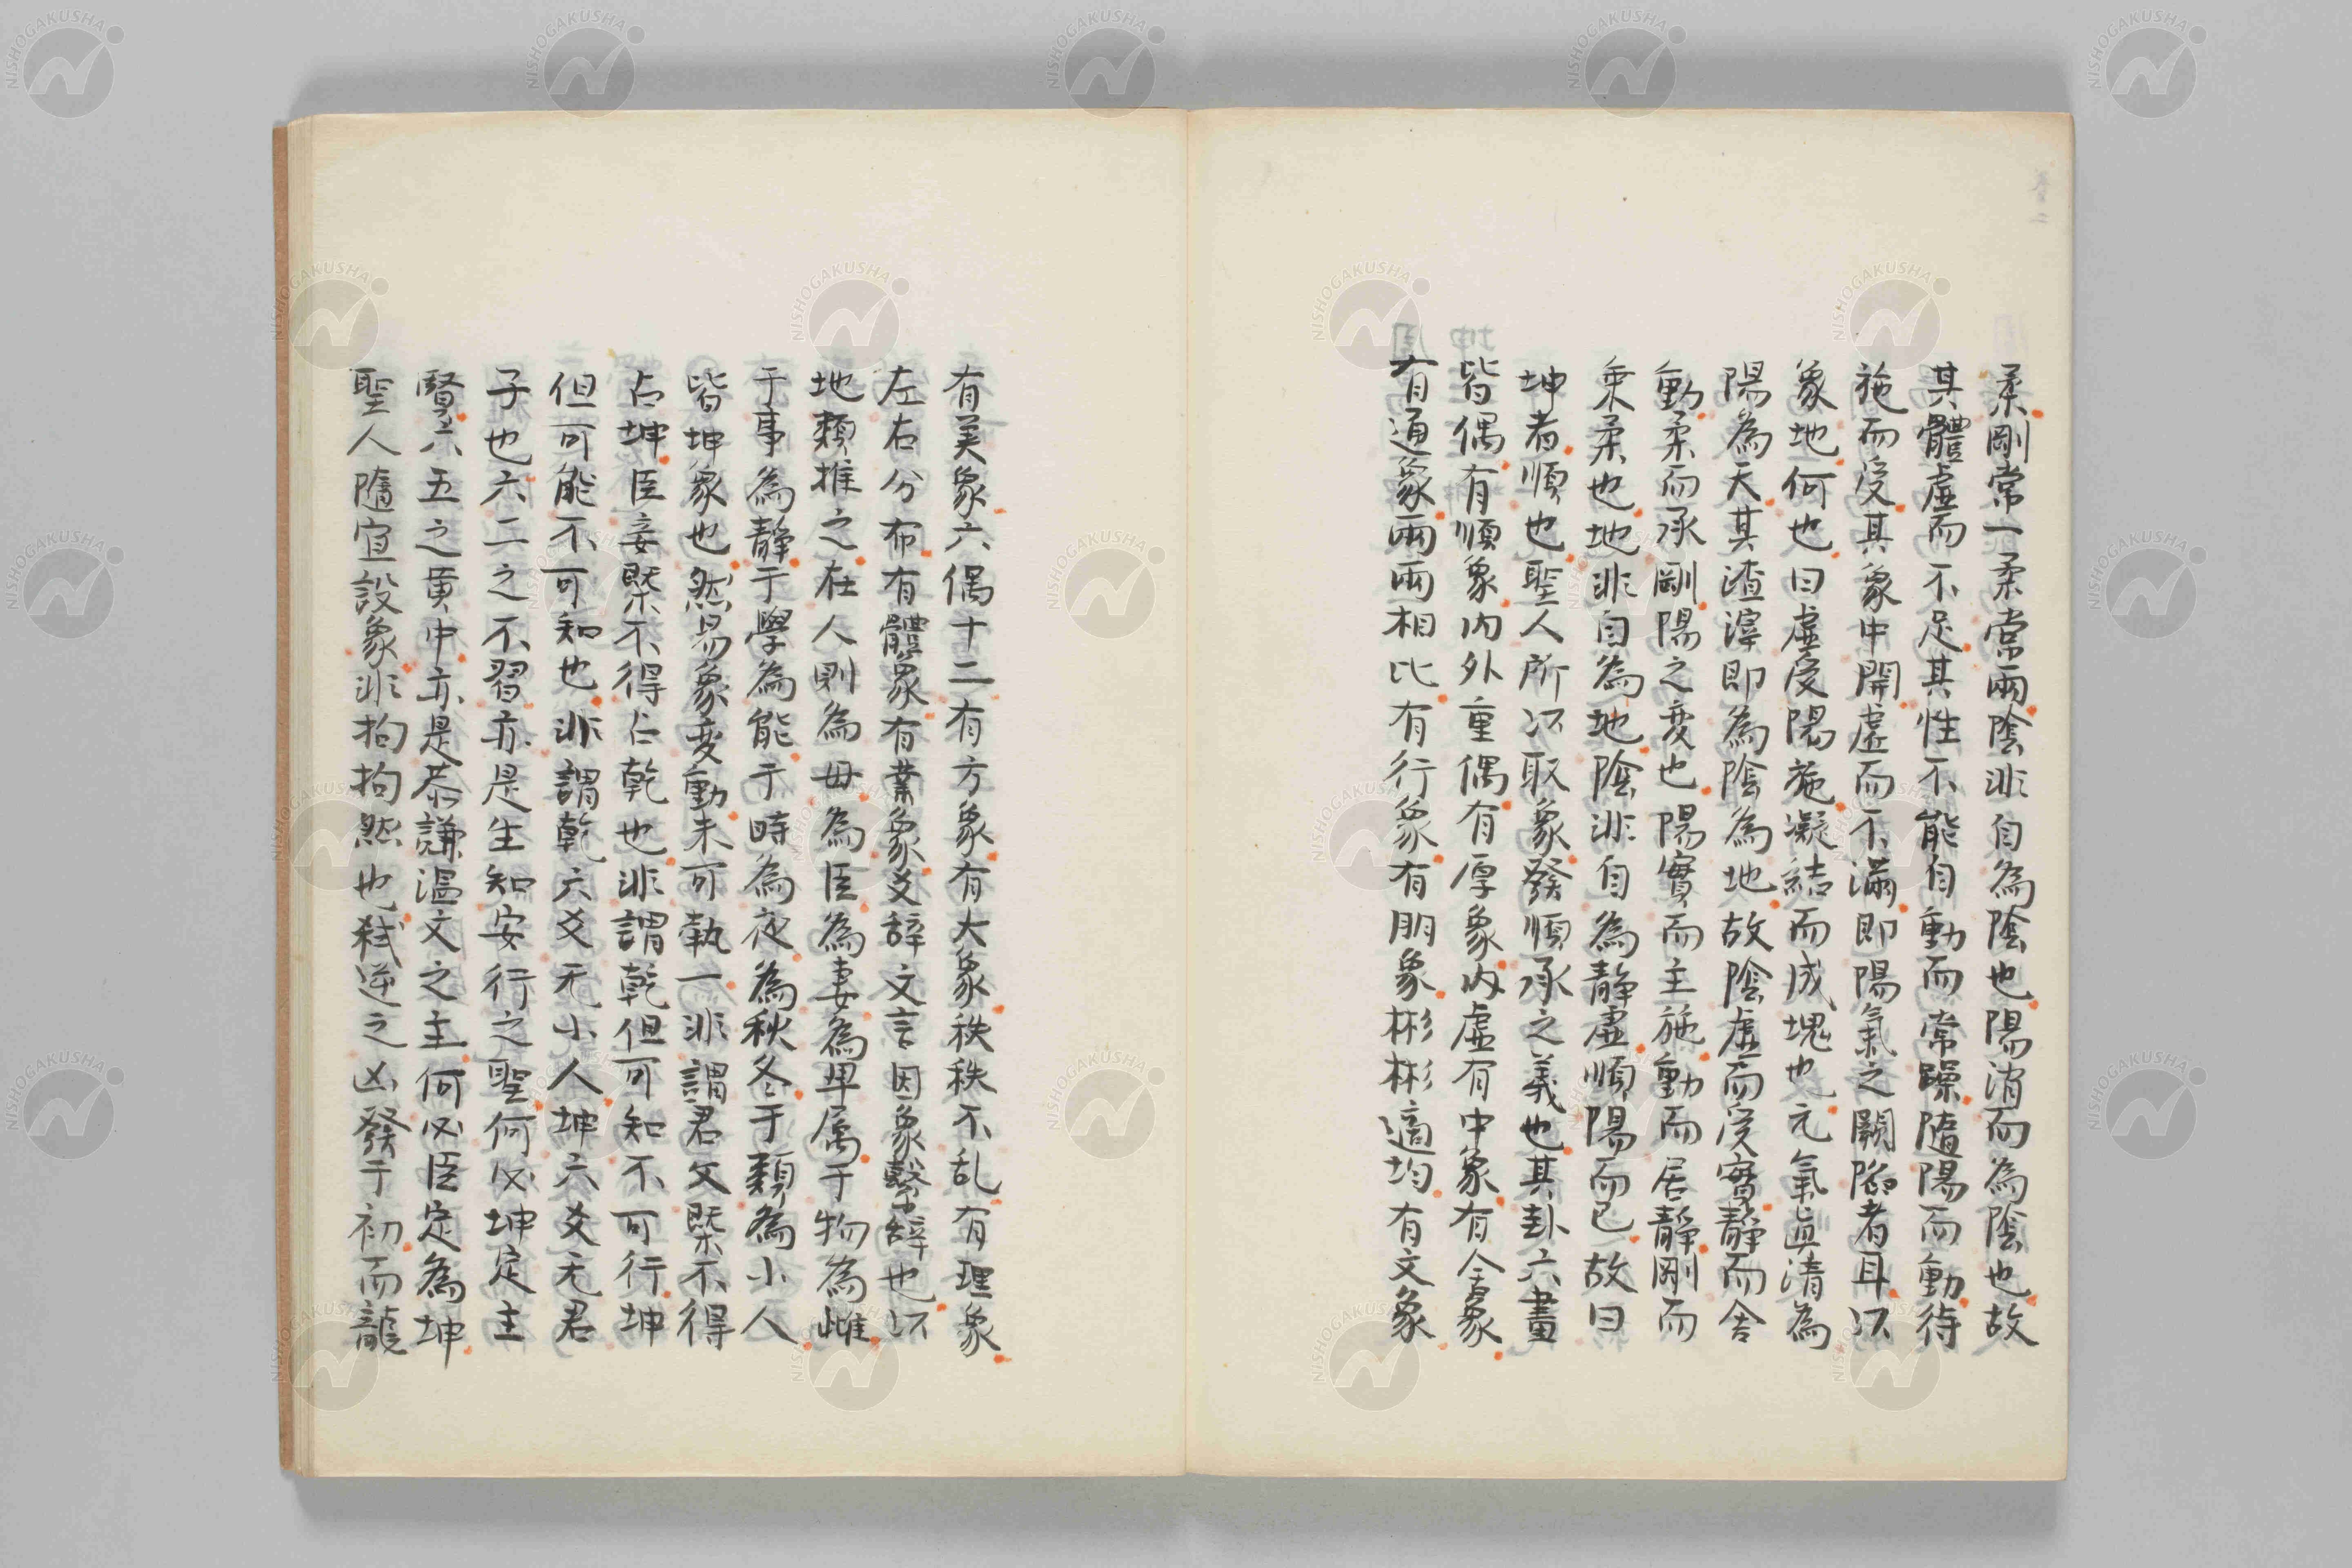 柔剛常一柔常兩陰非自為陰也陽消而為陰也故
其體虛而不足其性不能自動而常躁隨陽而動待
施而受其象中開虛而不滿即陽氣之闕陷者耳以
象地何也曰虛受陽施凝結而成塊也元氣眞清為
陽為天其渣滓即為陰為地故陰虛而受實靜而舍
動柔而承剛陽之変也陽實而主施動而居靜剛而
乗柔也地非自為地陰非自為靜虛順陽而已故曰
坤者順也聖人所以取象發順承之義也其卦六畫
皆偶有順象内外重偶有厚象内虛有中象有含象
有通象兩兩相比有行象有朋象彬彬適均有文象
有美象六偶十二有方象有大象秩秩不乱有理象
左右分布有體象有業象爻辞文言因象繫辞也以
地類推之在人則為母為臣為妻為卑属于物為雌
于事為静于學為能于時為夜為秋冬于類為小人
皆坤象也然易象変動未可執一非謂君父槩不得
占坤臣妾槩不得占乾也非謂乾但可知不可行坤
但可能不可知也非謂乾六爻无小人坤六爻无君
子也六二之不習亦是生知安行之聖何必坤定主
賢六五之黄中亦是恭謙温文之主何必臣定為坤
聖人隨宜設象非拘拘然也弑逆之凶發于初而龍
NISHOGAKUSHA